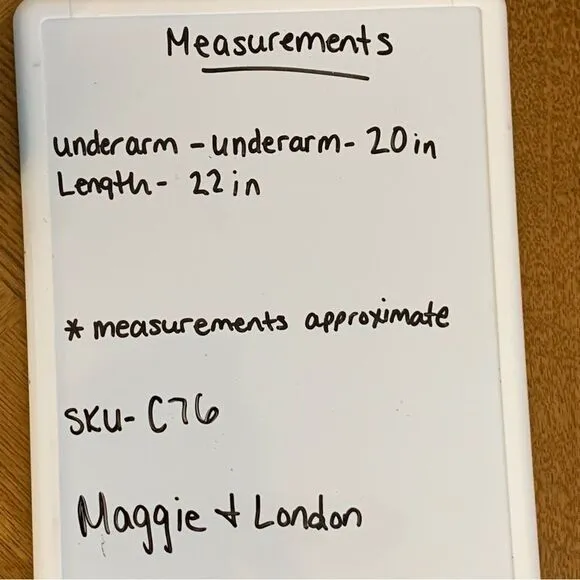 Measurements
underarm - underarm - 20 in
Length - 22 in
* measurements approximate
SKU - C76
Maggie + London